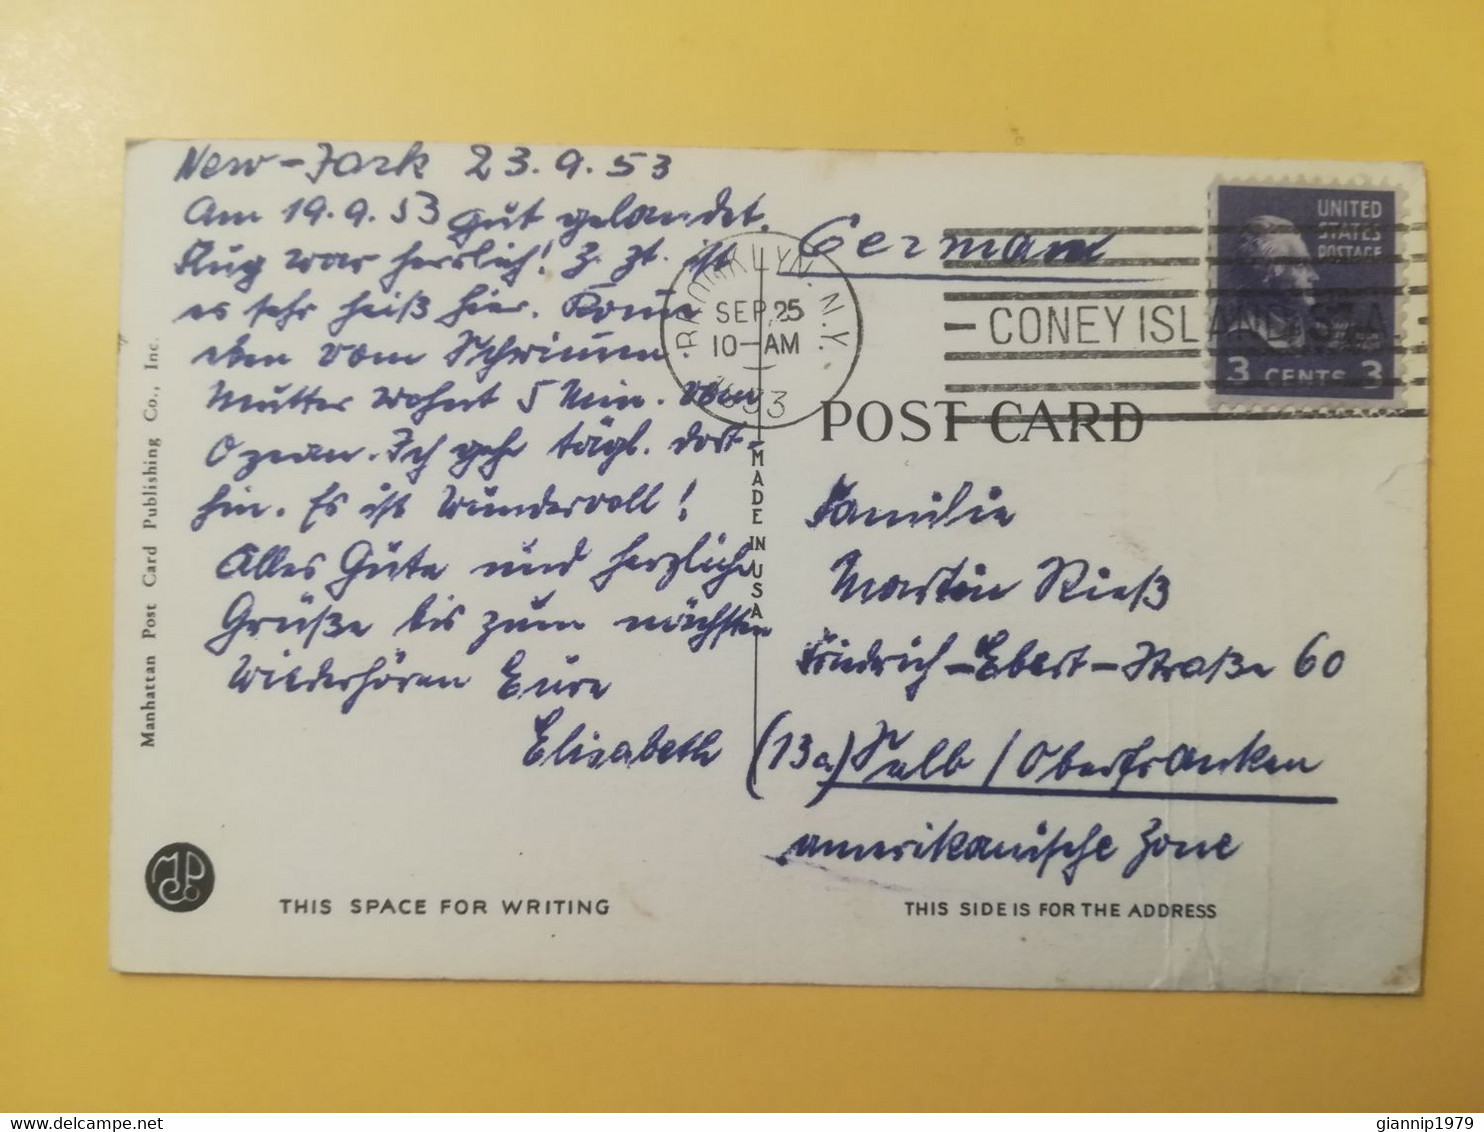 New-York 23.9.53
Am 19.9.53 gut gelandet.
Flug war herrlich! Z. Zt. ist
es sehr heiß hier. Komme
eben vom Schwimmen
Mutter wohnt 5 Min. vom
Ozean. Ich gehe tägl. dort-
hin. Es ist wundervoll!
Alles Gute und herzliche
Grüße bis zum nächsten
Wiederhören Eure
Elisabeth
Manhattan Post Card Publishing Co., Inc.
THIS SPACE FOR WRITING
MADE IN USA
BROOKLYN, N.Y.
SEP 25
10-AM
1953
CONEY ISLAND STA.
UNITED
STATES
POSTAGE
3 CENTS 3
German
POST CARD
Familie
Martin Rieß
Friedrich-Ebert-Straße 60
(13a) Selb / Oberfranken
amerikanische Zone
THIS SIDE IS FOR THE ADDRESS
giannip1979
delcampe.net